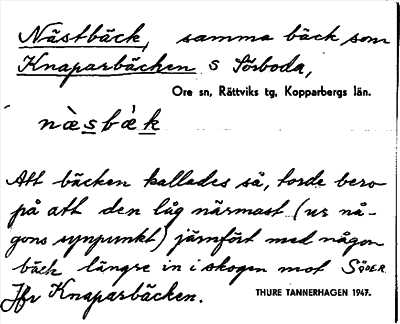 Nästbäck, samma bäck som
Knaparbäcken S Sörboda,
Ore sn, Rättviks tg, Kopparbergs län.
næ̀sbæ̀k
Att bäcken kallades så, torde bero
på att den låg närmast (ur nå-
gons synpunkt) jämfört med någon
bäck längre in i skogen mot SÖDER.
Jfr Knaparbäcken.
THURE TANNERHAGEN 1947.